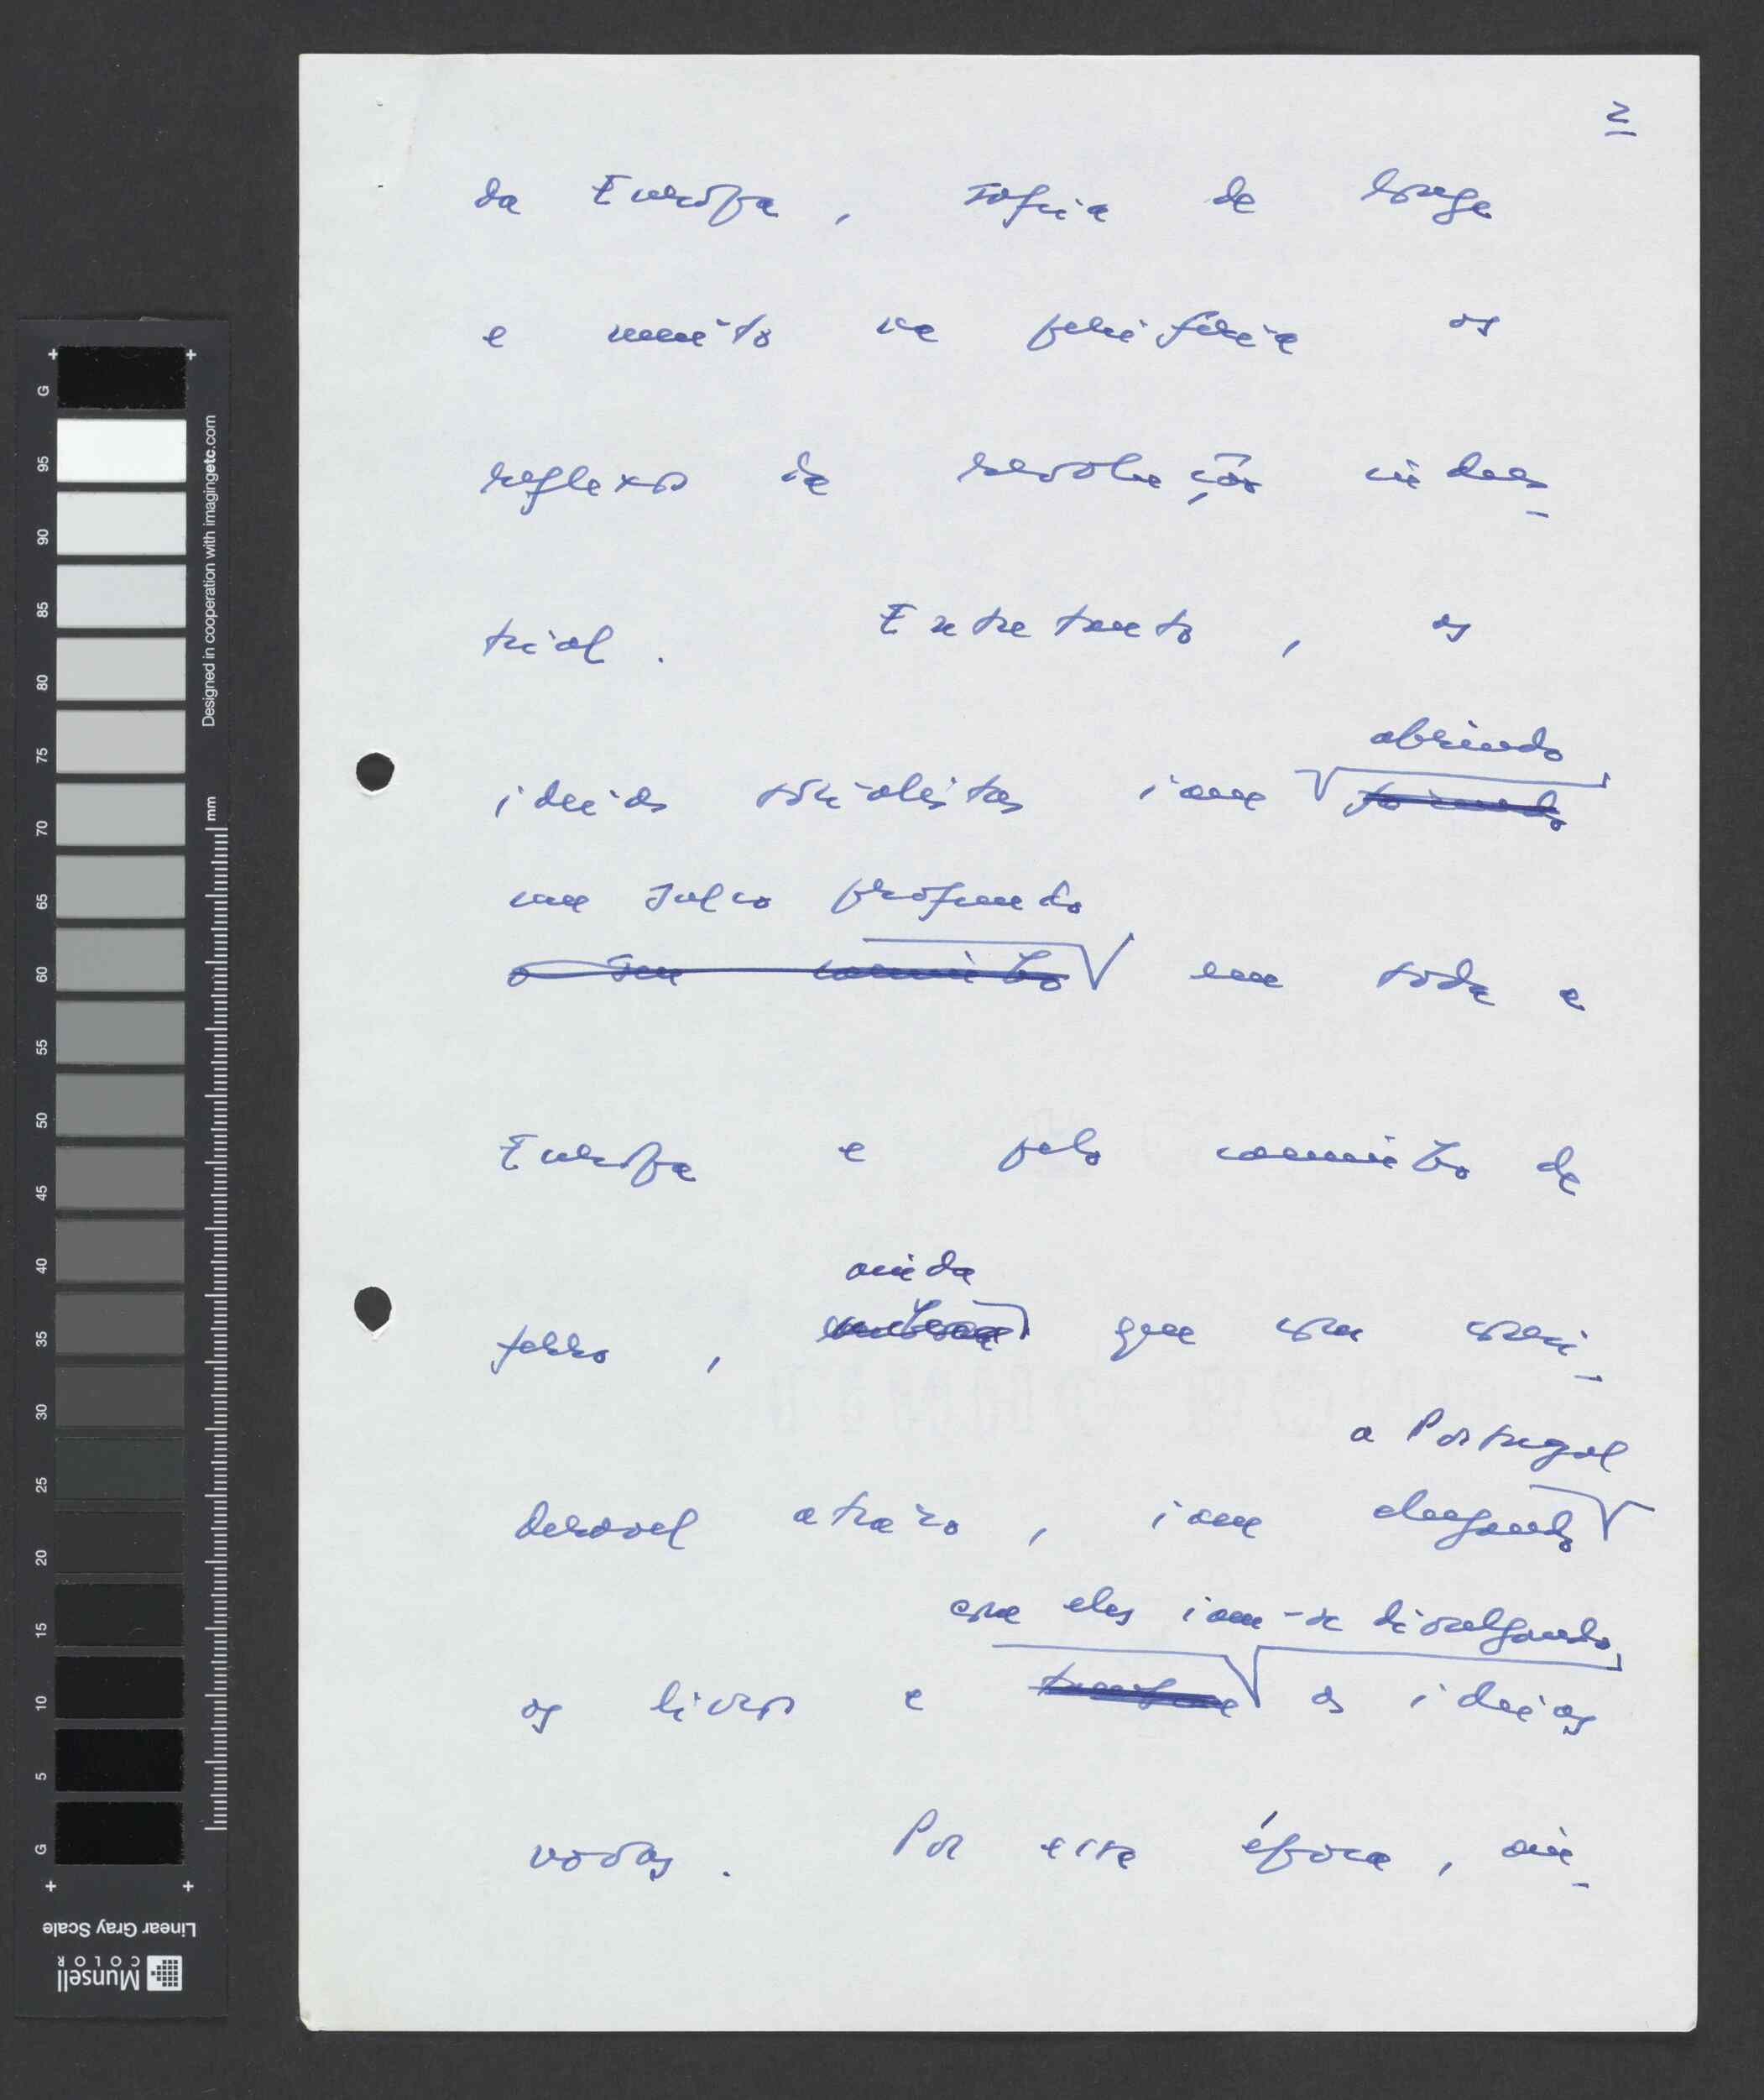 2
da Europa, sofria de longe
e muito na periferia os
reflexos da revolução indus-
trial. Entretanto, as
abrindo
ideias socialistas iam
um sulco profundo
o seu caminho em toda a
Europa e pelo caminho de
ainda
ferro, embora que com consi-
a Portugal
derável atrazo, iam chegando
com eles iam-se divulgando
os livros e as ideias
novas. Por essa época, ain-
Designed in cooperation with imagingetc.com
mm
G 95 90 85 80 75 70 65 60 55 50 45 40 35 30 25 20 15 10 5 G
Linear Gray Scale
Munsell
COLOR